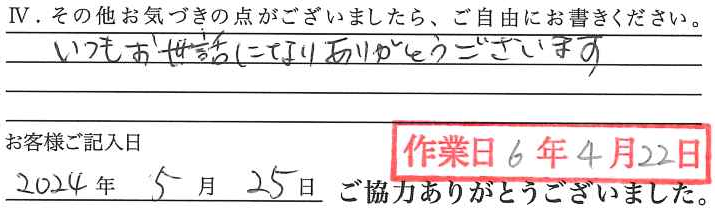 Ⅳ．その他お気づきの点がございましたら、ご自由にお書きください。
いつもお世話になりありがとうございます
お客様ご記入日
作業日 6 年 4 月 22 日
2024 年 5 月 25 日 ご協力ありがとうございました。